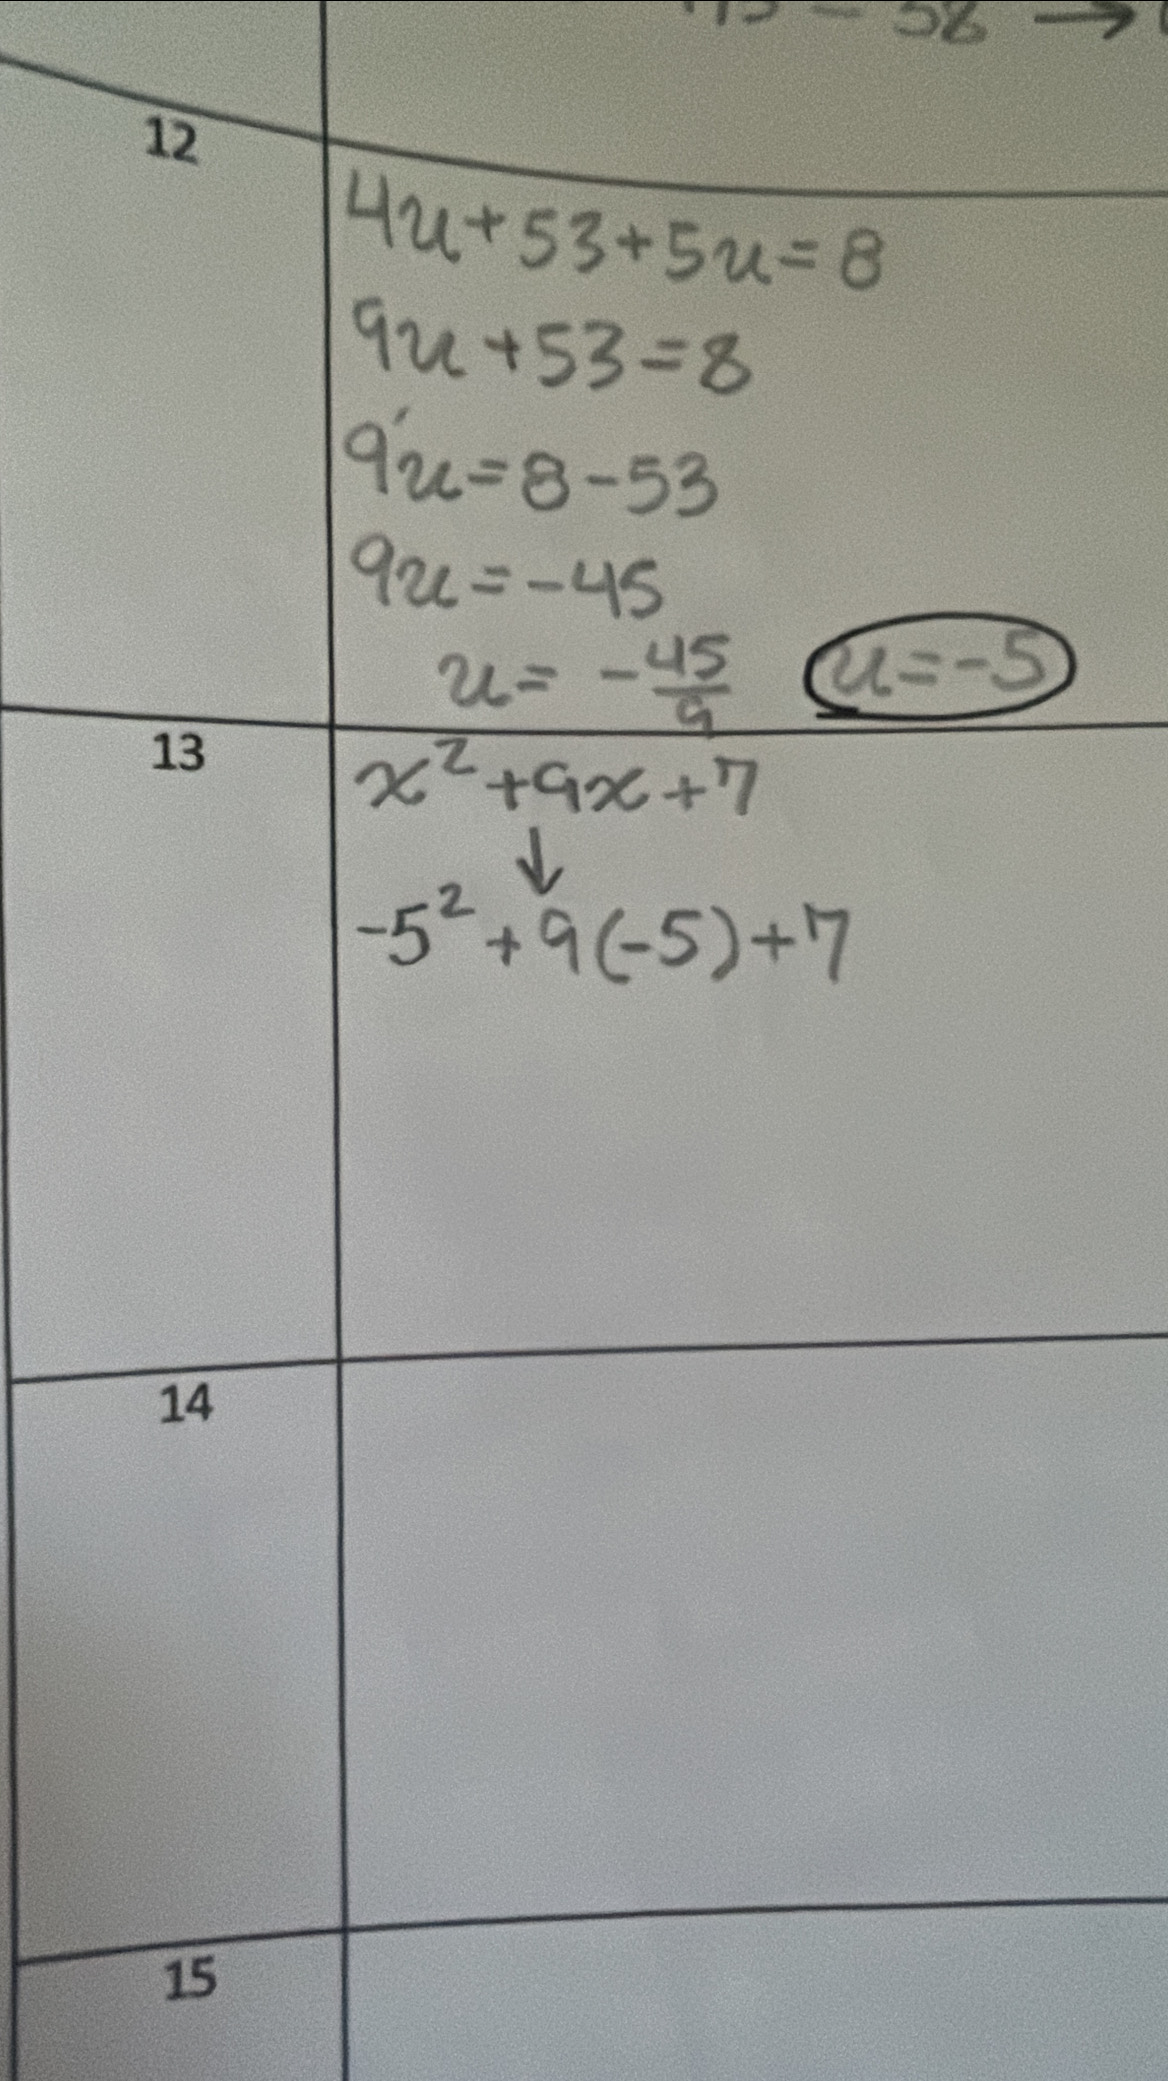 58 →
12
4u+53+5u=8
9u+53=8
9u=8-53
9u=-45
u=-45/9 u=-5
13
x²+9x+7
↓
-5²+9(-5)+7
14
15